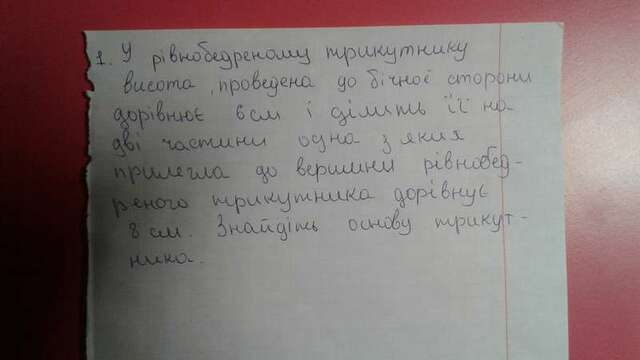 2. У рівнобедреному трикутнику
висота, проведена до бічної сторони
дорівнює 6см і ділить її на
дві частини одна з яких
прилегла до вершини рівнобед-
реного трикутника дорівнює
8 см. Знайдіть основу трикут-
ника.